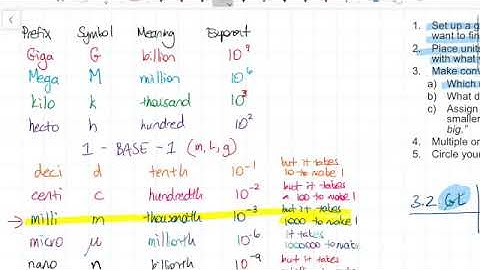 Prefix Symbol Meaning Exponent
Giga G billion 10⁹
Mega M million 10⁶
kilo k thousand 10³
hecto h hundred 10²
1 - BASE - 1 (m, L, g)
deci d tenth 10⁻¹ but it takes
10 to make 1
centi c hundredth 10⁻² but it takes
a 100 to make 1
→ milli m thousandth 10⁻³ but it takes
1000 to make 1
micro μ millionth 10⁻⁶ it takes
1000000 to make
nano n billionth 10⁻⁹ but it takes
1. Set up a g
want to fin
2. Place units
with what y
3. Make conv
a) Which u
b) What d
c) Assign
smaller
big."
4. Multiple or
5. Circle your
3.2 GL